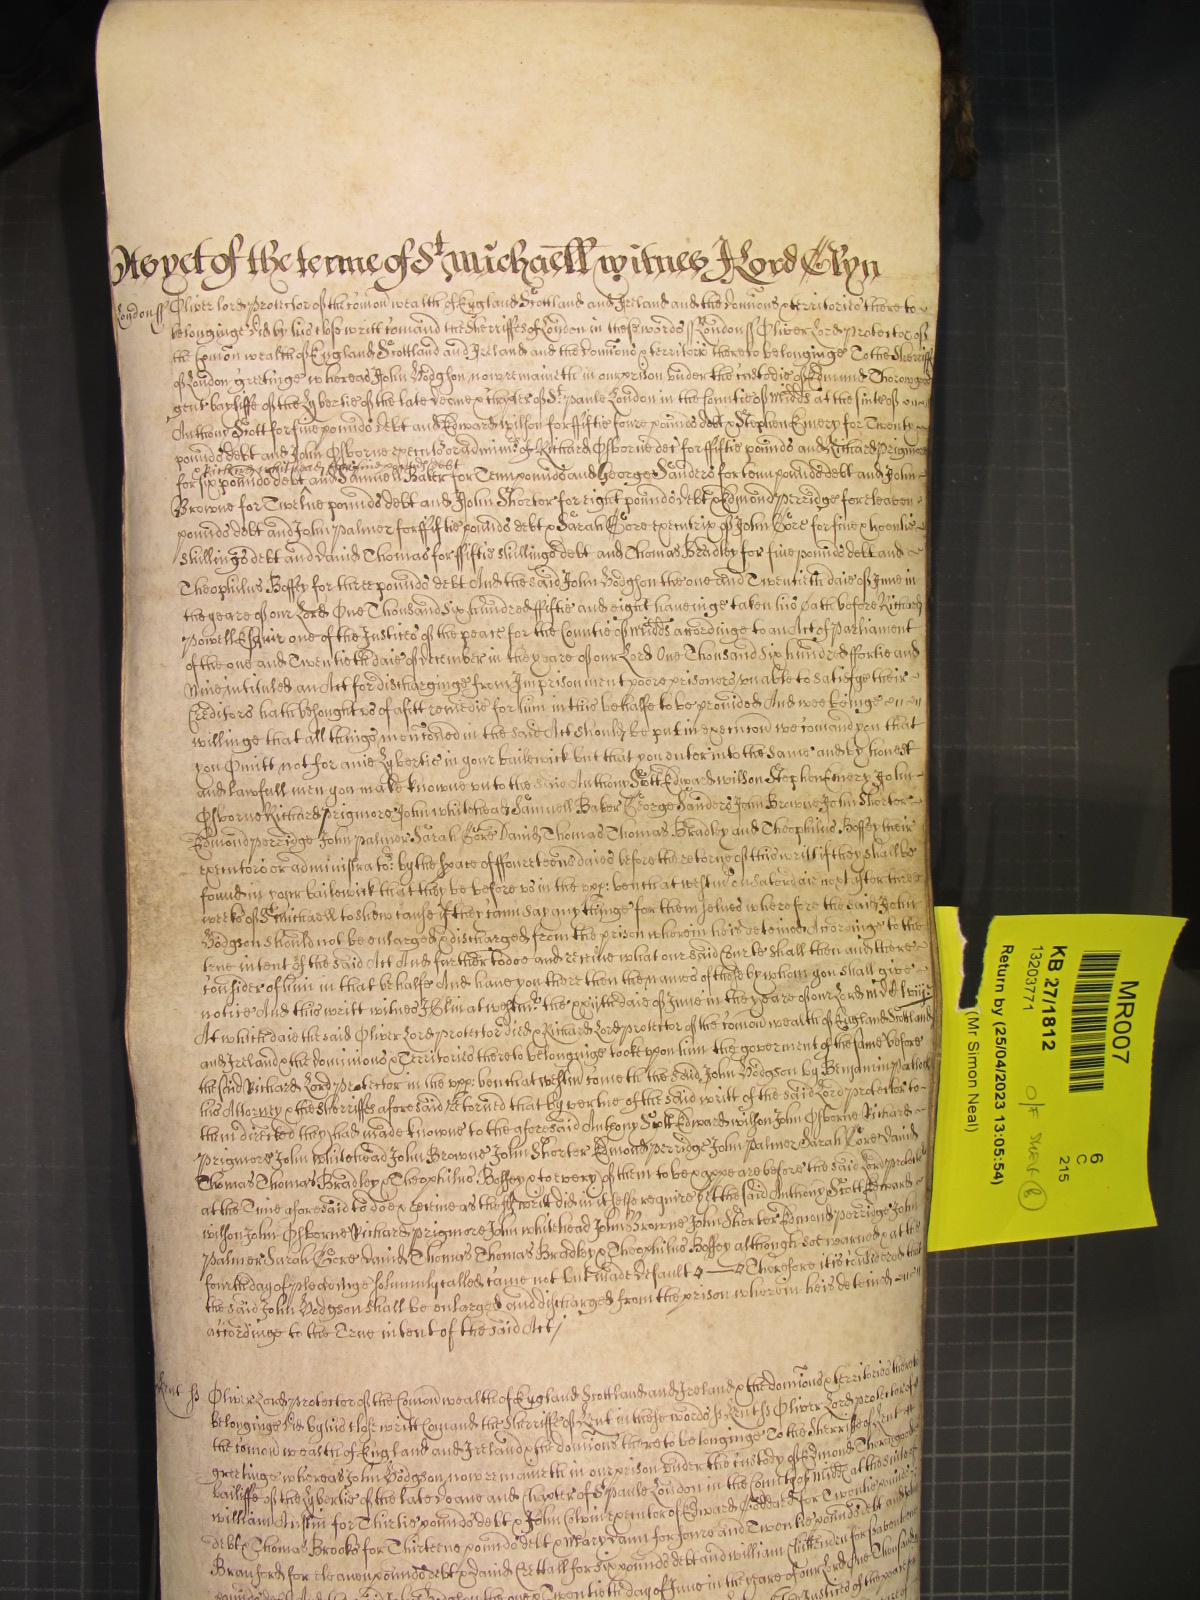 As yet of the terme of St Michaell witnes J Lord Glyn
London ss Oliver lord Protector of the comon wealth of England Scottland and Ireland and the dominions & territories there to
belonginge did by his close writt comand the Sherriffes of London in these words ss London ss Oliver Lord Protector of
the Comon wealth of England Scottland and Ireland and the dominions & territories thereto belonginge To the Sherriffs
of London greetinge whereas John Hodgson now remaineth in our prison under the custodie of Edmund Thorowgood
gent bayliffe of the Lybertie of the late Deane & Chapter of St Paule London in the Countie of Midds at the suite of
Anthony Scott for five pounds debt and Edward Wilson for fiftie foure pounds debt & Stephen Emery for Twenty
pounds debt and John Osborne executor administr of Richard Osborne dec for fiftie pounds and Richard Prigmore
for six pounds debt and Samuell Baker for Tenn pounds and George Sanders for tenn pounds debt and John
Browne for Twelve pounds debt and John Shorter for eight pounds debt & Edmond Perridge for eleaven
pounds debt and John Palmer for fiftie pounds debt & Sarah Gore executrix of John Gore for five & twentie
shillings debt and David Thomas for fiftie shillings debt and Thomas Bradley for five pounds debt and
Theophilus Boffey for three pounds debt And the said John Hodgson the one and Twentieth daie of June in
the yeare of our Lord One Thousand Six hundred fiftie and eight haveinge taken his oath before Richard
Powell Esquir one of the Justices of the peace for the Countie of Midds accordinge to an Act of Parliament
of the one and Twentieth daie of december in the yeare of our Lord One Thousand Six hundred fortie and
Nine intituled an Act for dischargeinge from Imprisonment poore prisoners unable to satisfye their
Creditors hath besought us of a fitt remedie for him in this behalfe to be provided And wee beinge
willinge that all things mentioned in the said Act should be put in execution we comand you that
you Omitt not for anie Lybertie in your bailewick but that you enter into the same and by honest
and lawfull men you make knowne unto the said Anthony Scott Edward Wilson Stephen Emery John
Osborne Richard Prigmore John Whitehead Samuell Baker George Sanders John Browne John Shorter
Edmond Perridge John Palmer Sarah Gore David Thomas Thomas Bradley and Theophilus Boffey their
executors or administrators by the space of fourteene daies before the retorne of this writt if they shall be
found in your bailewick that they be before us in the upp: bench at Westm on Saturdaie next after three
weekes of St Michaell to shew cause if they cann say any thinge for them selves wherefore the said John
Hodgson should not be enlarged & discharged from the prison wherein he is deteined Accordinge to the
true intent of the said Act And further to doe and receive what our said Courte shall then and there
consider of him in that behalfe And have you there then the names of those by whom you shall give
notice And this writt witnes J Glyn at Westm the xxijth daie of June in the yeare of our Lord
At which daie the said Oliver Lord Protector died & Richard Lord protector of the comon wealth of England Scottland
and Ireland & the dominions & Territories thereto belonginge tooke upon him the goverment of the same before
the said Richard Lord Protector in the upp: bench at Westm cometh the said John Hodgson by Benjamin
his Attorney & the Sherriffes aforesaid retorned that by vertue of the said writt of the said Lord protector to
them directed they had made knowne to the aforesaid Anthony Scott Edward Wilson John Osborne Richard
Prigmore John Whitehead John Browne John Shorter Edmond Perridge John Palmer Sarah Gore David
Thomas Thomas Bradley & Theophilus Boffey & to every of them to be & appeare before the said Lord protector
at the Time aforesaid to doe & receive as the writt did in it selfe require yet the said Anthony Scott Edward
Wilson John Osborne Richard Prigmore John Whitehead John Browne John Shorter Edmond Perridge John
Palmer Sarah Gore David Thomas Thomas Bradley & Theophilus Boffey although so warned & at the
fourth day of pleadinge solemnly called came not but made default Therefore it is considered that
the said John Hodgson shall be enlarged and discharged from the prison wherein he is deteined
accordinge to the True intent of the said Act
Kent ss Oliver Lord Protector of the Comon wealth of England Scottland and Ireland & the dominions & territories thereto
belonginge did by his close writt Comand the Sherriffe of Kent in these words ss Kent ss Oliver Lord protector of
the comon wealth of England and Ireland & the dominions thereto belonginge To the Sherriffe of Kent
greetinge whereas John Hodgson now remaineth in our prison under the custody of Edmond Thorowgood
bailiffe of the Lybertie of the late Deane and Chapter of St Paule London in the County of Midds at the suite of
William Austin for Thirtie pounds debt & John executor of Edward Goddard for Twentie pounds
debt & Thomas Brooks for Thirteene pounds debt & Mary for foure and Twentie pounds debt and
Branford for eleaven pounds debt & David for six pounds debt and William for seaventeene
MR007
KB 27/1812
13203771
6
C
215
Return by (25/04/2023 13:05:54)
(Mr Simon Neal)